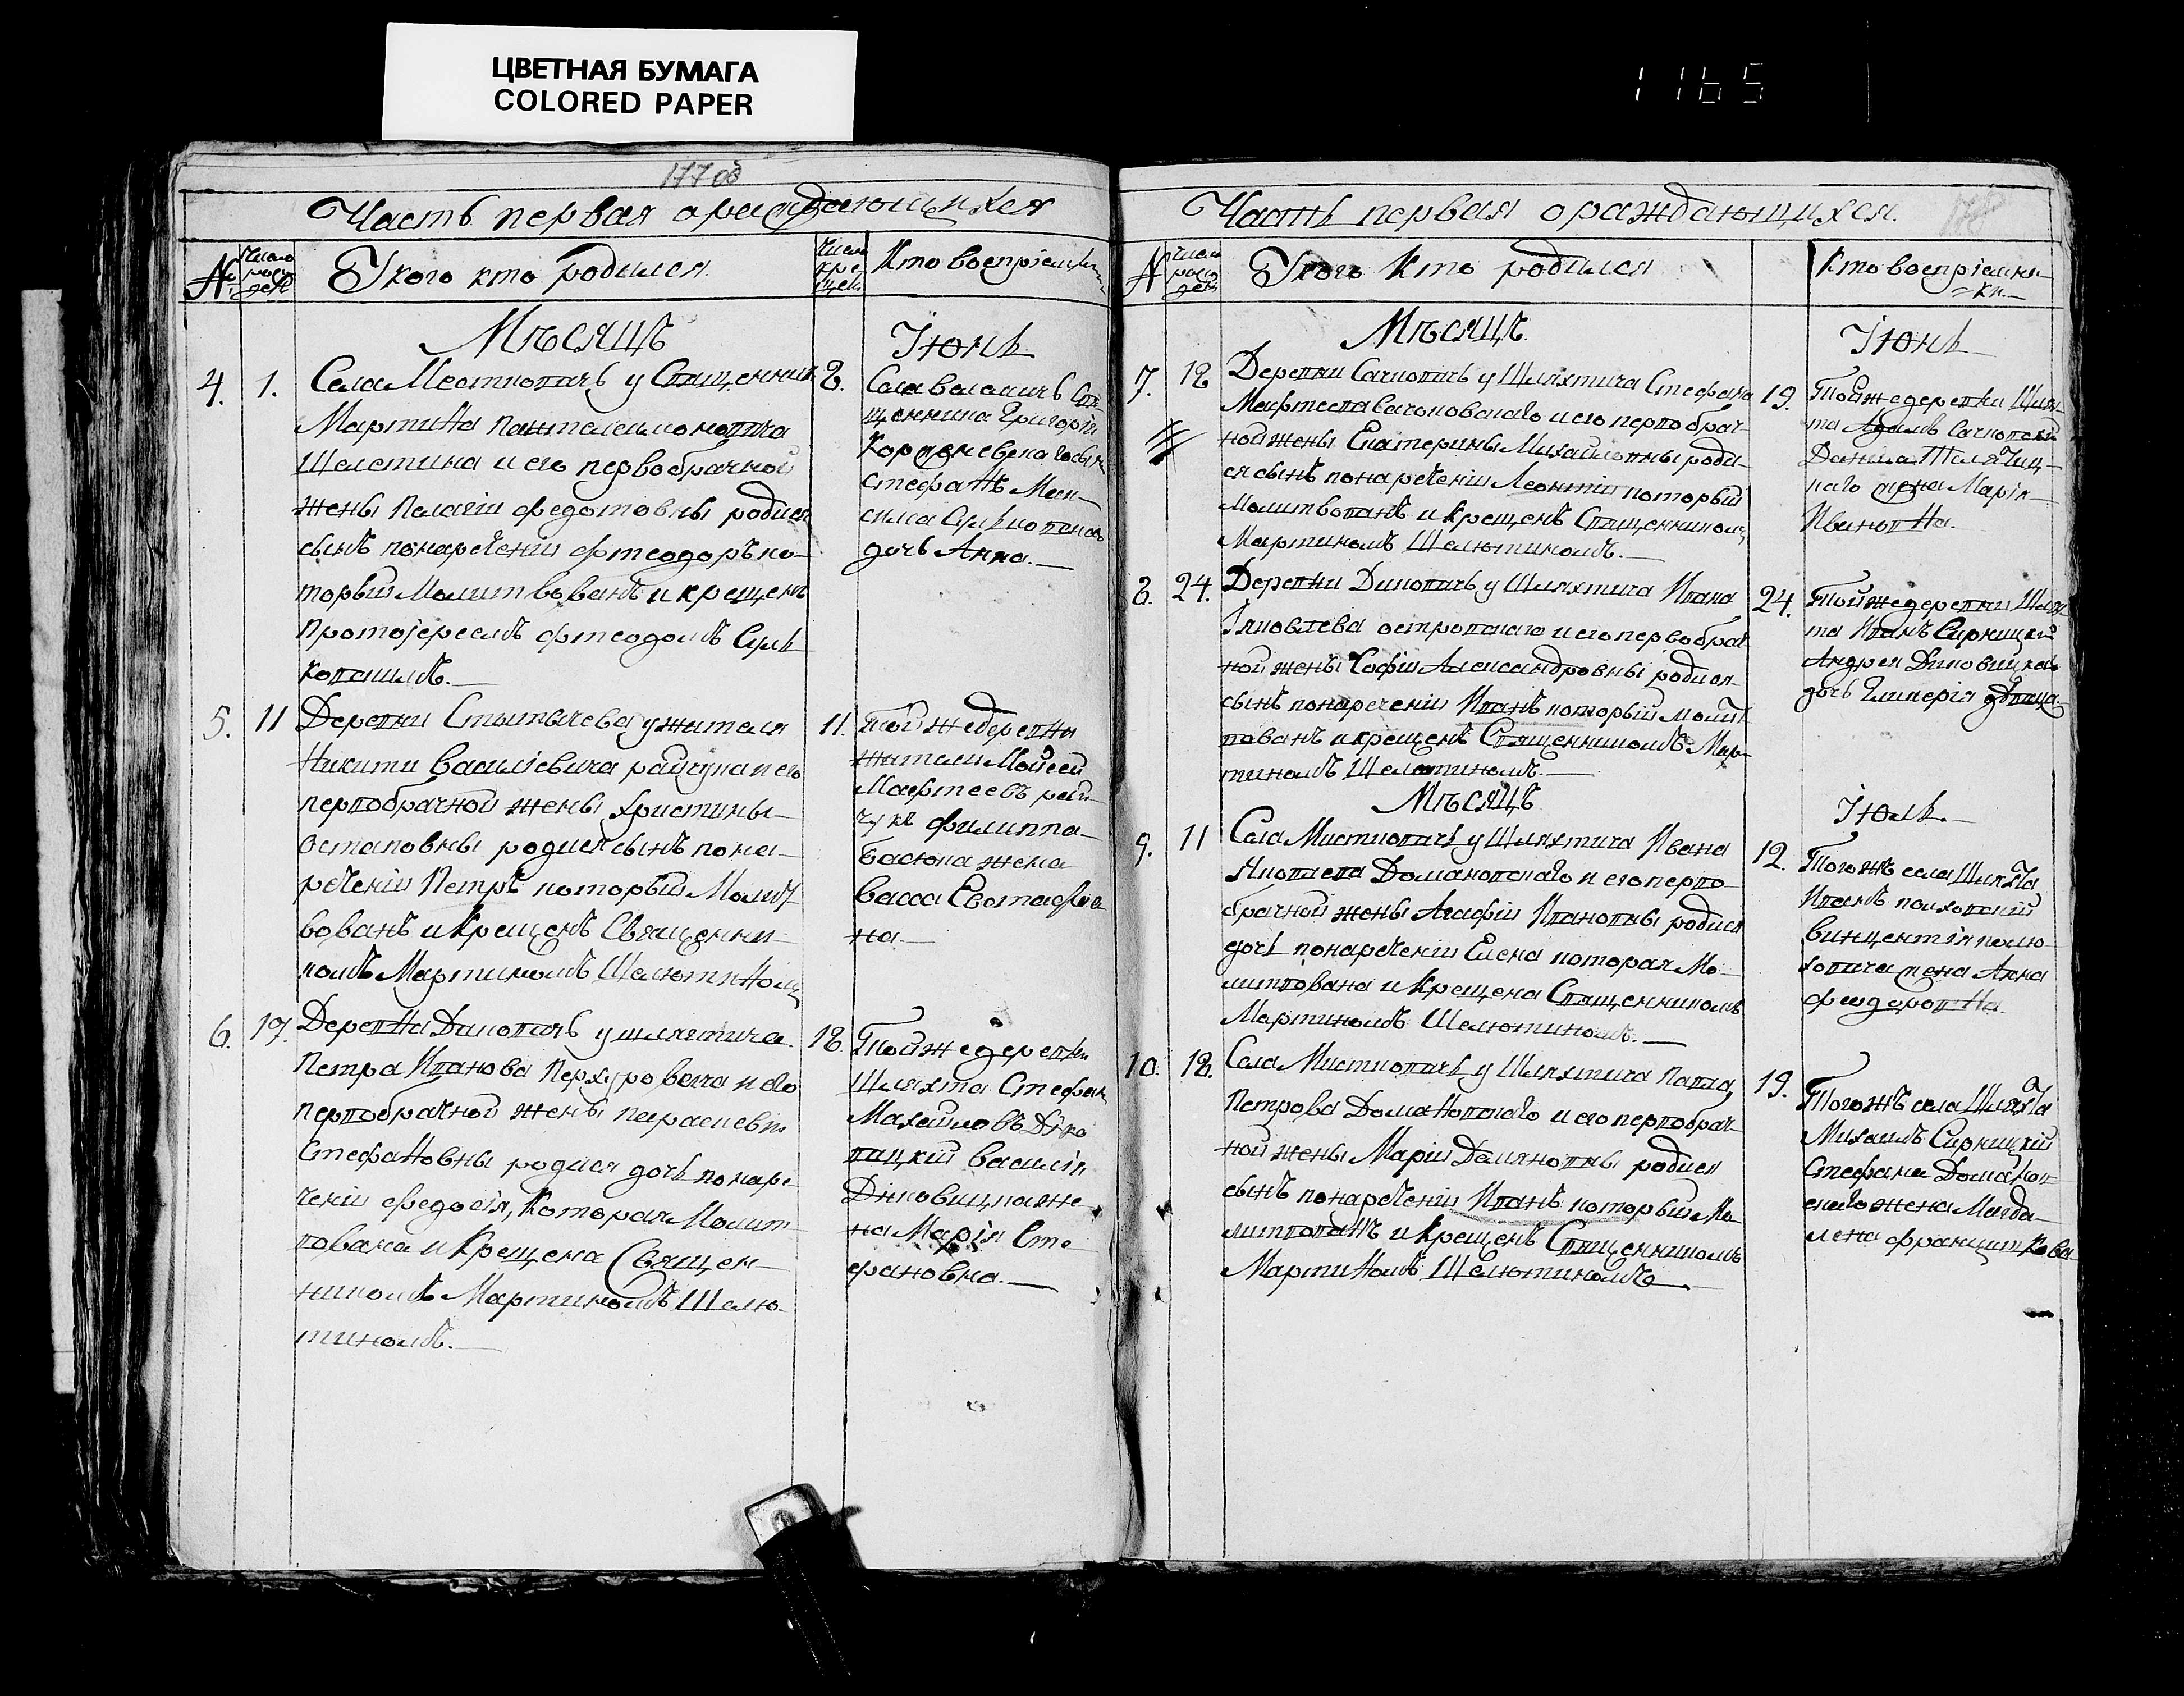 ЦВЕТНАЯ БУМАГА
COLORED PAPER
1165
177 об
Часть первая о раждающихся
№
Число рожден
У кого кто родился.
Число крещен
Кто воспріемник
Мѣсяцъ
Іюнь
4.
1.
Села Местковичь у Священник
Мартина Пантелеимоновича
Щелетина и его первобрачной
жены Пелагіи Федотовны родися
сынъ понаречении Фтеодоръ ко-
торый Молитвованъ и крещенъ
Протоіереемъ Фтеодомъ
2.
щенника Григорія
Стефанъ Мак-
сима
дочь Анна.
5.
11
Деревни у жителя
Никити Васильевича райчука и его
первобрачной жены Христины
Остаповны родися сынъ пона-
речении Петръ который Молит
вованъ и крещенъ Священни-
комъ Мартиномъ Щелютином
11.
Той же деревни
жители Мойсей
Мафтеевъ рай-
чукъ Филиппа
Басюка жена
Васса Евстафие
на.
6.
17.
Деревни Диковичь у шляхтича
Петра Иванова Перхуровича и его
первобрачной жены Параскевіи
Стефановны родися дочь понаре-
чении Федосія, Которая Молит-
вована и Крещена Священ-
никомъ Мартиномъ Щелю-
тиномъ.
18.
Той же деревни
Шляхта Стефан
Михайловъ Дико
вицкій Василія
Диковицка же-
на Марія Сте-
фановна.
Часть первая о раждающихся.
178
№
Число рожден
У кого Кто родился
Кто воспріемни-
ки.
Мѣсяцъ.
Іюнь
7.
18
Деревни Сачковичь у Шляхтича Стефана
Мафтеева Сачковского и его первобрач-
ной жены Екатерины Михайловны роди-
ся сынъ понаречении Леонтій который
Молитвованъ и крещенъ Священником
Мартиномъ Щелютиномъ.
19.
Той же деревни Шлях-
та Адамъ Сачковскій
ного жена Марія
Ивановна.
8.
24.
Деревни Диковичь у Шляхтича Ивана
Яковлева островского и его первобрач
ной жены Софіи Александровны родися
сынъ понаречении Иванъ который молит
вованъ и крещенъ Священникомъ Мар-
тиномъ Щелютиномъ.
24.
Той же деревни Шлях
та Иванъ Сирницкій
Андрея Диковицкаго
дочь Гликерія девица
Мѣсяцъ
Іюль
9.
11
Села Мистковичь у Шляхтича Ивана
Яковлева Домановского и его перво-
брачной жены Агафіи Ивановны родися
дочь понаречении Елена которая Мо-
литвована и крещена Священникомъ
Мартиномъ Щелютиномъ.
12.
Тогожъ села Шляхта
Винцентія
жена Анна
Феодоровна.
10.
18.
Села Мистковичь у Шляхтича Павла
Петрова Домановского и его первобрач-
ной жены Маріи Демяновны родися
сынъ понаречении Иванъ который Мо
литвованъ и крещенъ Священникомъ
Мартиномъ Щелютиномъ
19.
Тогожъ села Шляхта
Михаилъ Сирницкій
Стефана Доманов-
ского жена Магда-
лена Францишкова